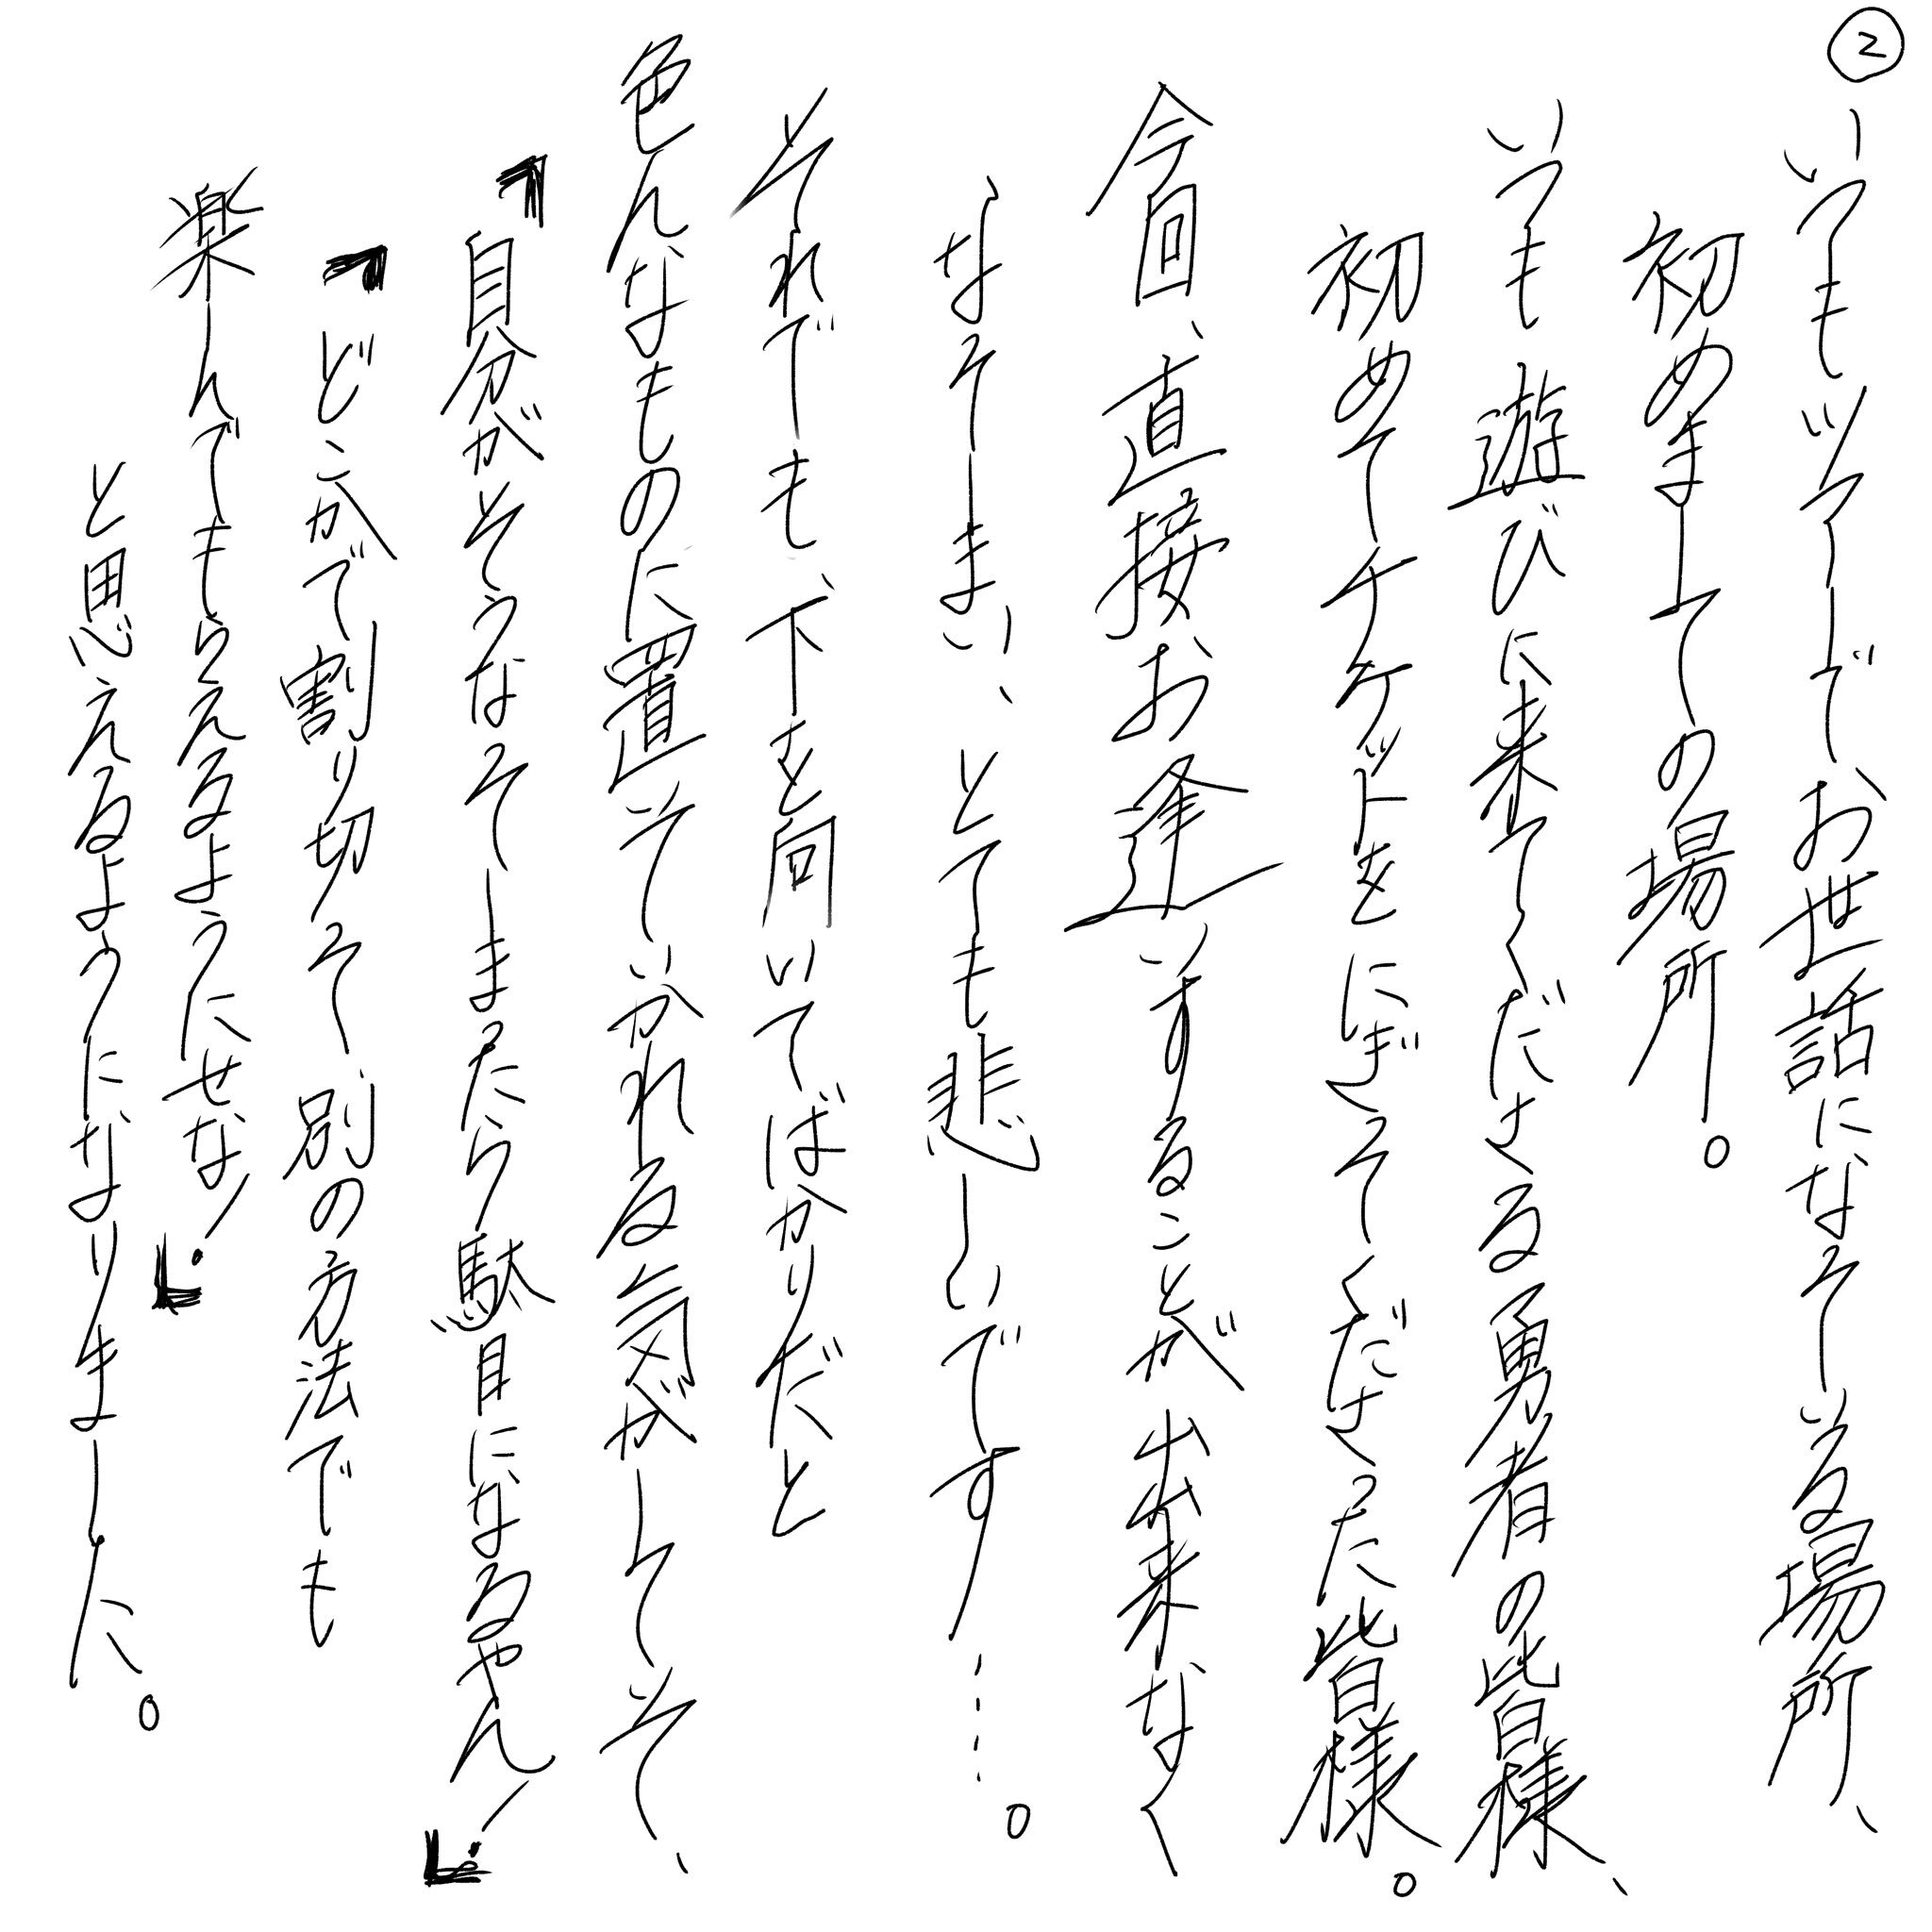 ②
いつもツアーで、お世話になっている場所、
初めましての場所。
いつも遊びに来てくださる勇者の皆様、
初めてチケットをにぎってくださった皆様。
今回、直接、お逢いすることが出来なく
なってしまい、とても悲しいです……。
それでも、下を向いてばかりだと
色んなものに置いていかれる気がしていて、
『自分がそうなってしまったら駄目になるやん！』
『どこかで割り切って、別の方法でも
楽しんでもらえるようにせな！』
と思えるようになりました。